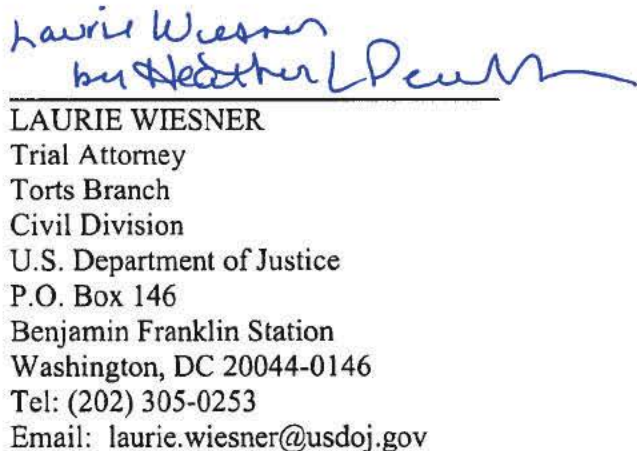 Laurie Wiesner
by Heather L
LAURIE WIESNER
Trial Attorney
Torts Branch
Civil Division
U.S. Department of Justice
P.O. Box 146
Benjamin Franklin Station
Washington, DC 20044-0146
Tel: (202) 305-0253
Email: laurie.wiesner@usdoj.gov